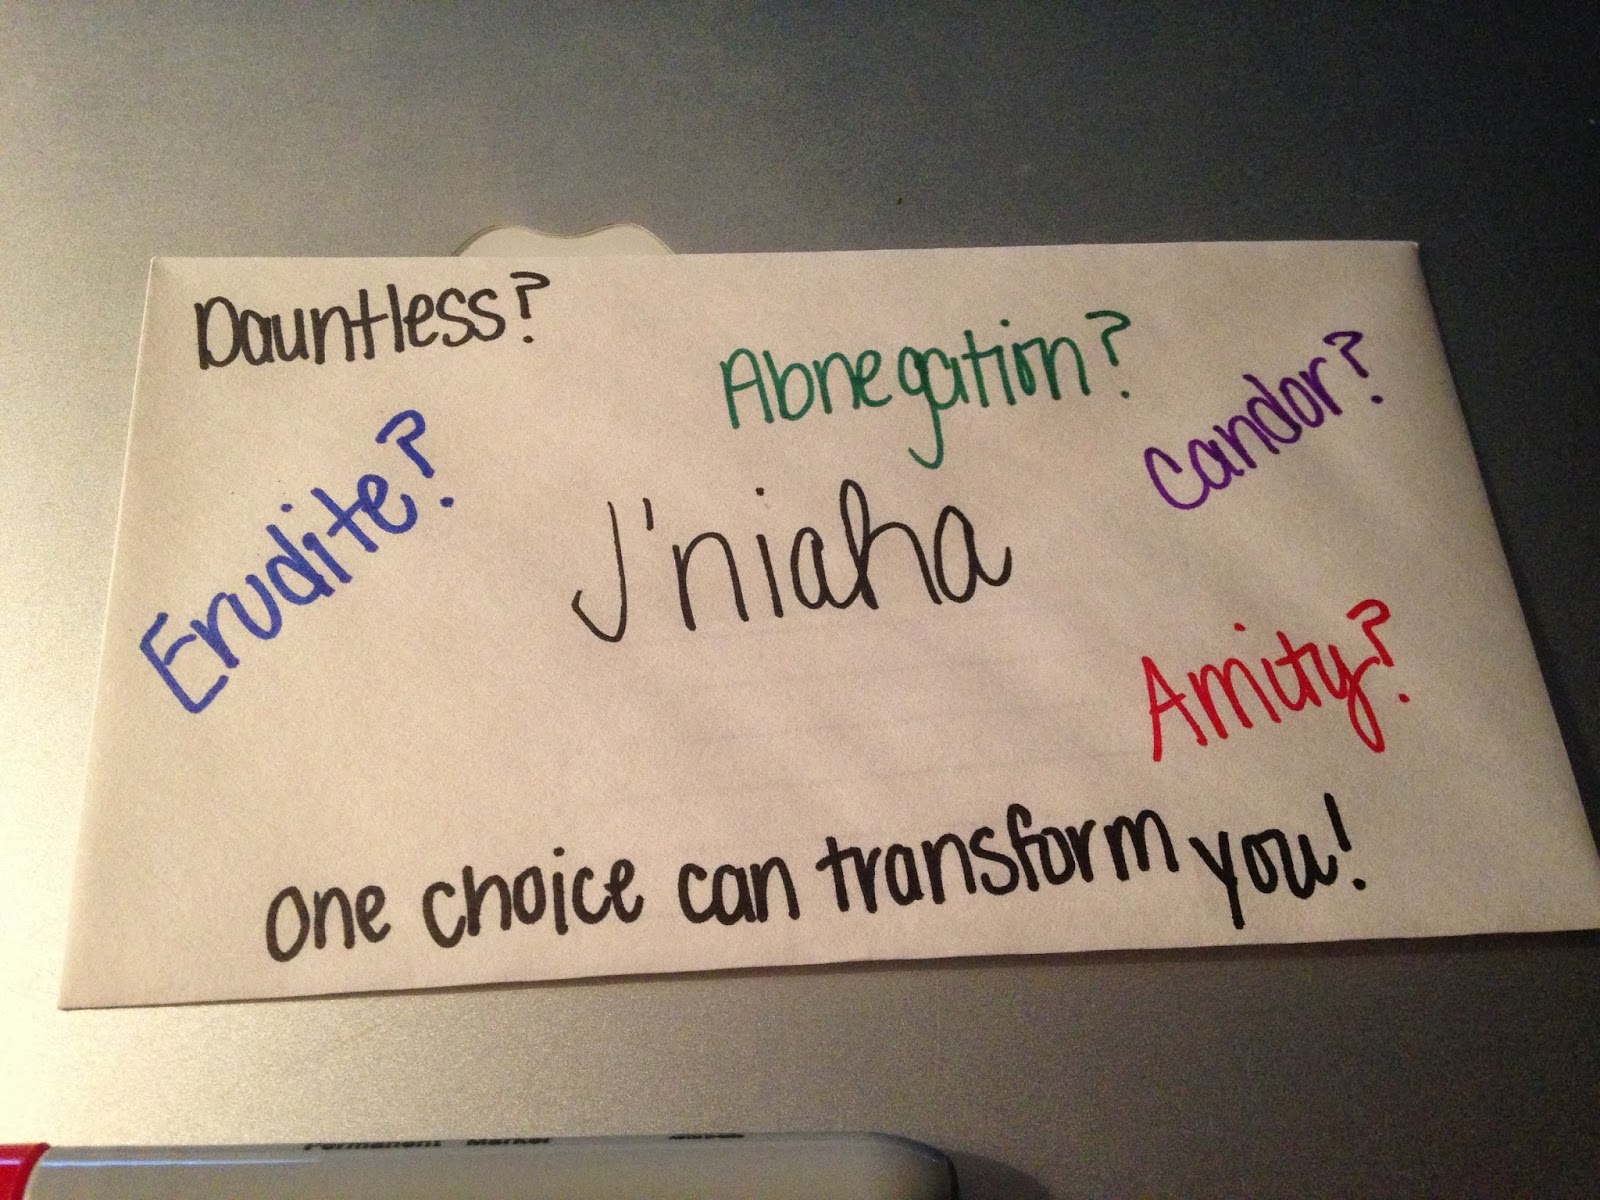 Dauntless?
Abnegation?
Candor?
Erudite?
J'niaha
Amity?
one choice can transform you!
Permanent Marker